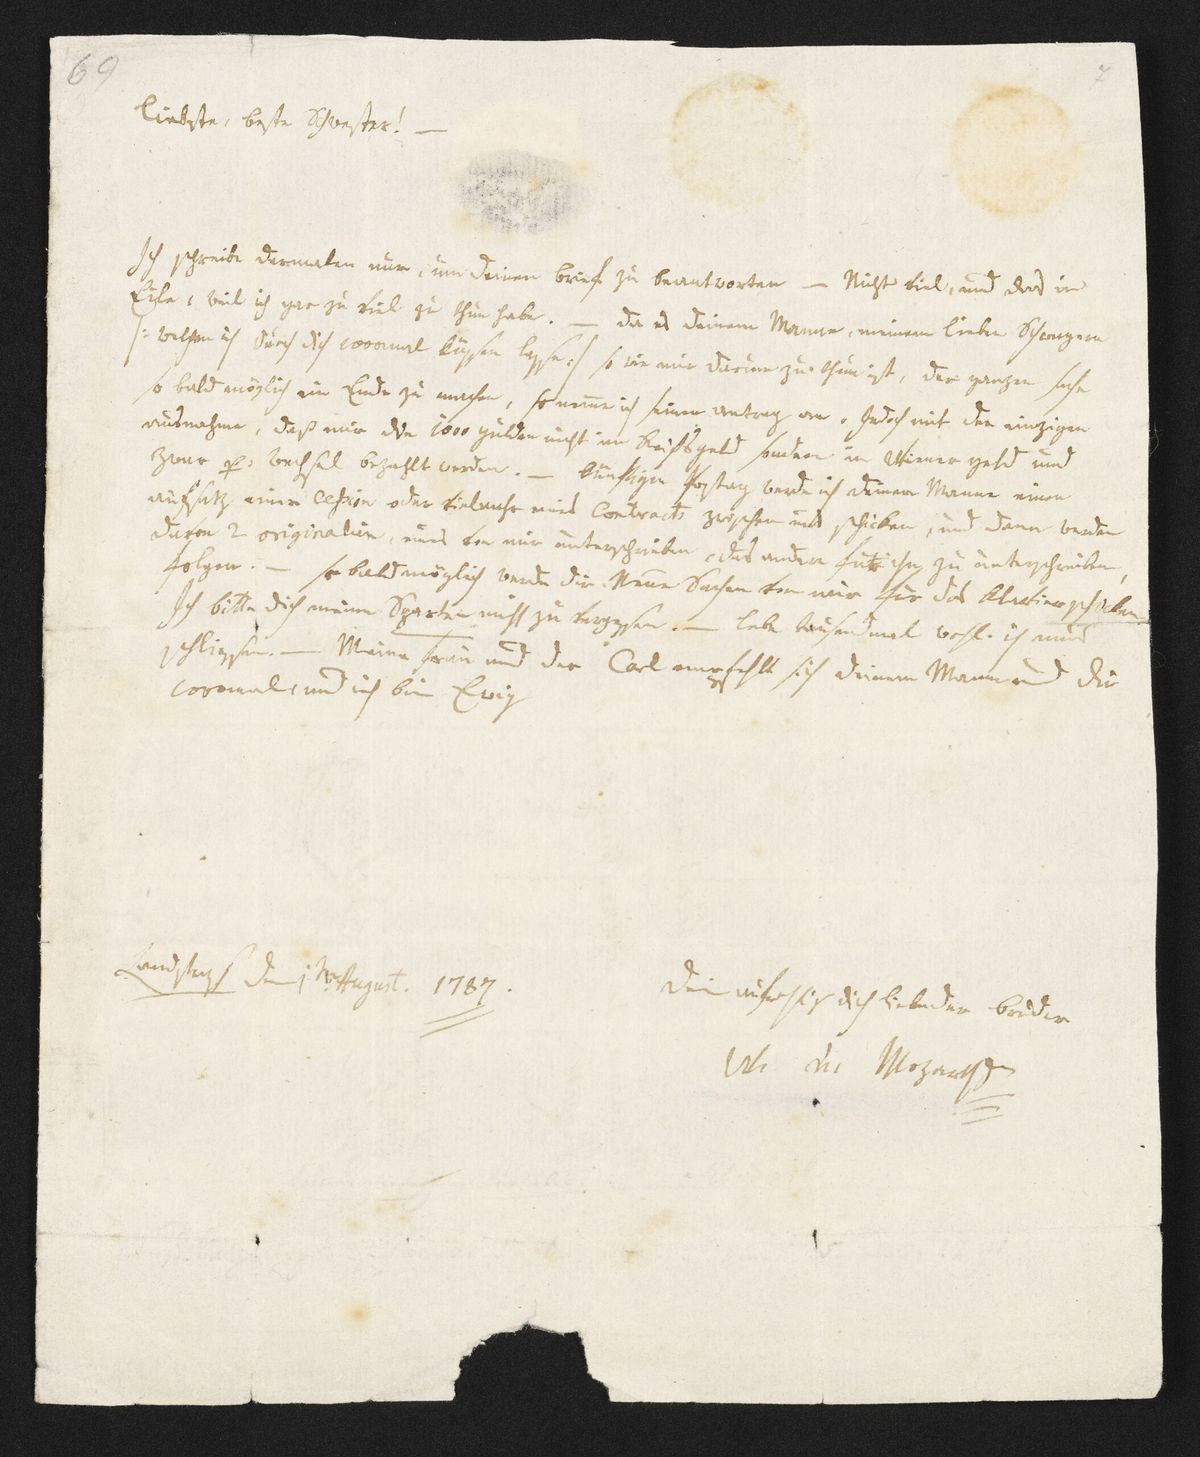 69
7
liebste, beste Schwester! —
Ich schreibe dermalen nur, um deinen brief zu beantworten — Nicht viel, und das in
Eile, weil ich gar zu viel zu thun habe. — da es deinem Manne, meinem lieben Schwagern
/: welchen ich durch dich 1000mal küssen lasse :/ so wie mir darum zu thun ist, der ganzen sache
so bald möglich ein Ende zu machen, so nemme ich seinen antrag an. Jedoch mit der einzigen
ausnahme, daß mir die 1000 gulden nicht in Reichsgeld sondern in Wiener geld und
zwar per Wechsel bezahlt werden. — künftigen Posttag werde ich deinem Manne einen
aufsatz einer Cession oder vielmehr eines Contracts zwischen uns schicken, und dann werden
davon 2 originalien, eins von mir unterschrieben, das andere für ihn zu unterschreiben,
folgen. — so bald möglich werde dir Neue Sachen von mir für das klavier schicken
Ich bitte dich meine Sparten nicht zu vergessen. — lebe tausendmal wohl. ich muß
schliessen. — Meine Frau und der Carl empfehlt sich deinem Mann und dir
1000mal, und ich bin Ewig
Landstrasse den 1:ten August. 1787.
Dein aufrichtig dich liebender bruder
W: A: Mozart